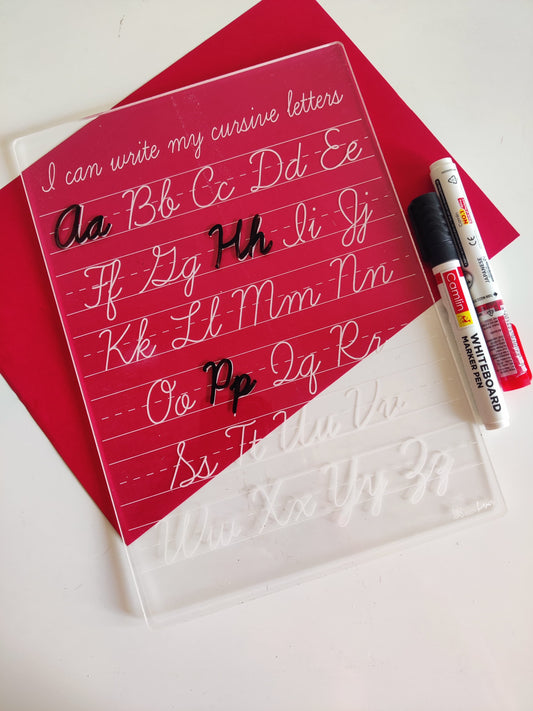 I can write my cursive letters
Aa Bb Cc Dd Ee
Ff Gg Hh Ii Jj
Kk Ll Mm Nn
Oo Pp Qq Rr
Ss Tt Uu Vv
Ww Xx Yy Zz
Camlin
WHITEBOARD
MARKER PEN
JAPANESE